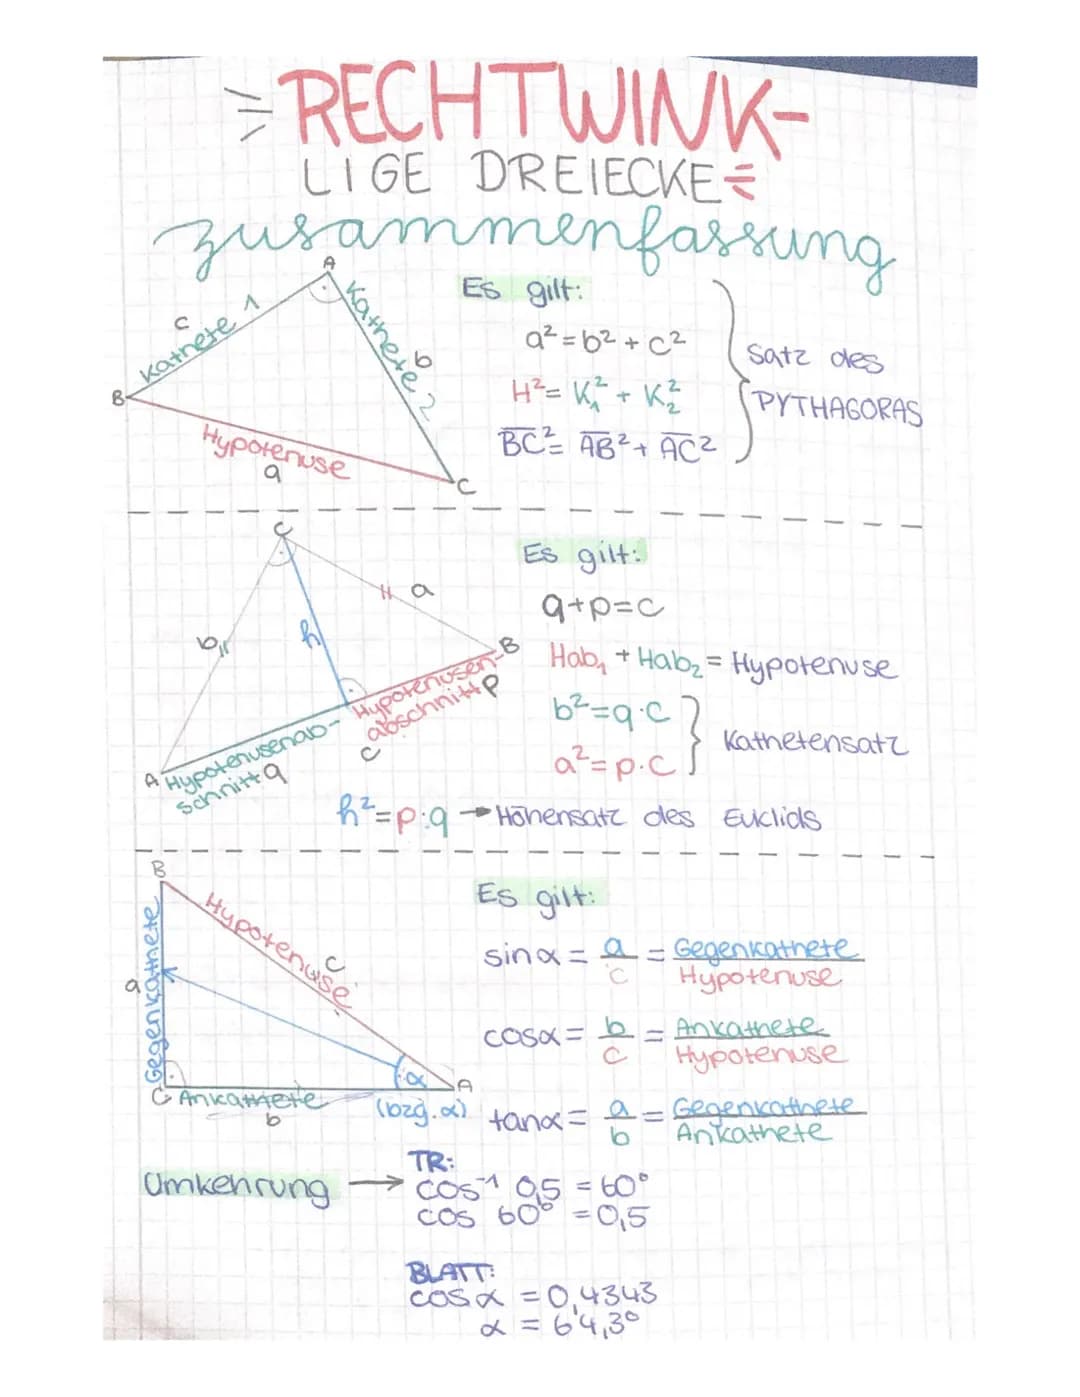 RECHTWINK-
LIGE DREIECKE
zusammenfassung
A
c
Kathete 1
Kathete 2
b
B
Hypotenuse
a
C
Es gilt:
a² = b² + c²
H² = K₁² + K₂²
BC² = AB² + AC²
Satz des
PYTHAGORAS
C
a
b
h
B
A
Hypotenusenab-
schnitt q
Hypotenusen-
abschnitt p
c
Es gilt:
q+p=c
Hab₁ + Hab₂ = Hypotenuse
b²=q·c
a²=p·c
Kathetensatz
h²=p:q → Höhensatz des Euclids
B
Hypotenuse
c
a
Gegenkathete
C Ankathete
b
α
A
(bzg. α)
Es gilt:
sin α = a/c = Gegenkathete/Hypotenuse
cos α = b/c = Ankathete/Hypotenuse
tan α = a/b = Gegenkathete/Ankathete
Umkehrung →
TR:
cos⁻¹ 0,5 = 60°
cos 60° = 0,5
BLATT:
cos α = 0,4343
α = 64,3°